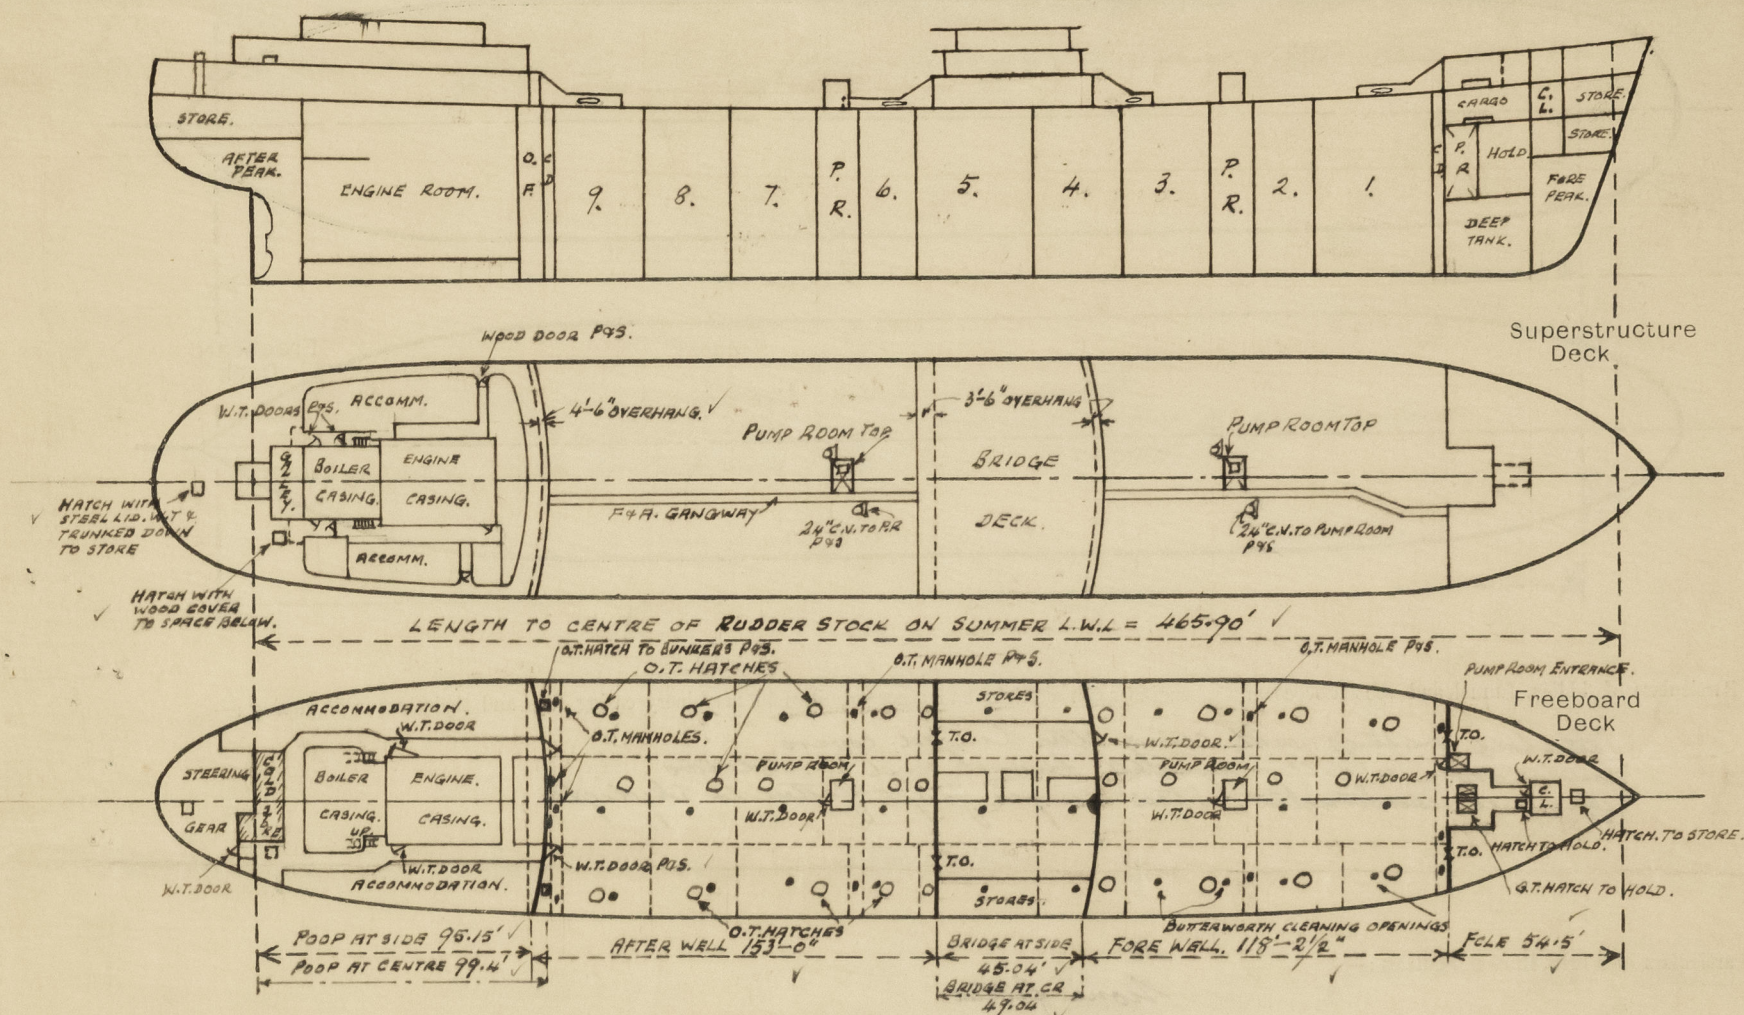 STORE.
AFTER
PEAK.
ENGINE ROOM.
O.
F.
C
D
9.
8.
7.
P.
R.
6.
5.
4.
3.
P.
R.
2.
1.
C
D
P.
R
CARGO
HOLD
C.
L.
STORE.
STORE.
FORE
PEAK.
DEEP
TANK.
Superstructure
Deck
WOOD DOOR P&S.
W.T. DOORS P&S.
ACCOMM.
4'-6" OVERHANG.
3'-6" OVERHANG
PUMP ROOM TOP
PUMP ROOM TOP
GALLEY.
BOILER
CASING.
ENGINE
CASING.
BRIDGE
DECK.
HATCH WITH
STEEL LID. W.T &
TRUNKED DOWN
TO STORE
F&A. GANGWAY
24" C.V. TO P.R
P&S
24" C.V. TO PUMP ROOM
P&S
ACCOMM.
HATCH WITH
WOOD COVER
TO SPACE BELOW.
LENGTH TO CENTRE OF RUDDER STOCK ON SUMMER L.W.L = 465.90'
O.T. HATCH TO BUNKERS P&S.
O.T. HATCHES
O.T. MANHOLE P&S.
O.T. MANHOLE P&S.
PUMP ROOM ENTRANCE.
Freeboard
Deck
ACCOMMODATION.
W.T. DOOR
O.T. MANHOLES.
STORES
T.O.
W.T. DOOR
T.O.
W.T. DOOR
STEERING
GEAR
BOILER
CASING.
UP
ENGINE.
CASING.
PUMP ROOM
W.T. DOOR
PUMP ROOM
W.T. DOOR
W.T. DOOR
C.
L.
HATCH. TO STORE.
HATCH TO HOLD.
W.T. DOOR
W.T. DOOR
ACCOMMODATION.
W.T. DOOR P&S.
T.O.
STORES
T.O.
O.T. HATCH TO HOLD.
O.T. HATCHES
BUTTERWORTH CLEANING OPENINGS
POOP AT SIDE 95.15'
POOP AT CENTRE 99.4'
AFTER WELL 153'-0"
BRIDGE AT SIDE
45.04'
BRIDGE AT CR
49.04
FORE WELL. 118'-2½"
FCLE 54.5'